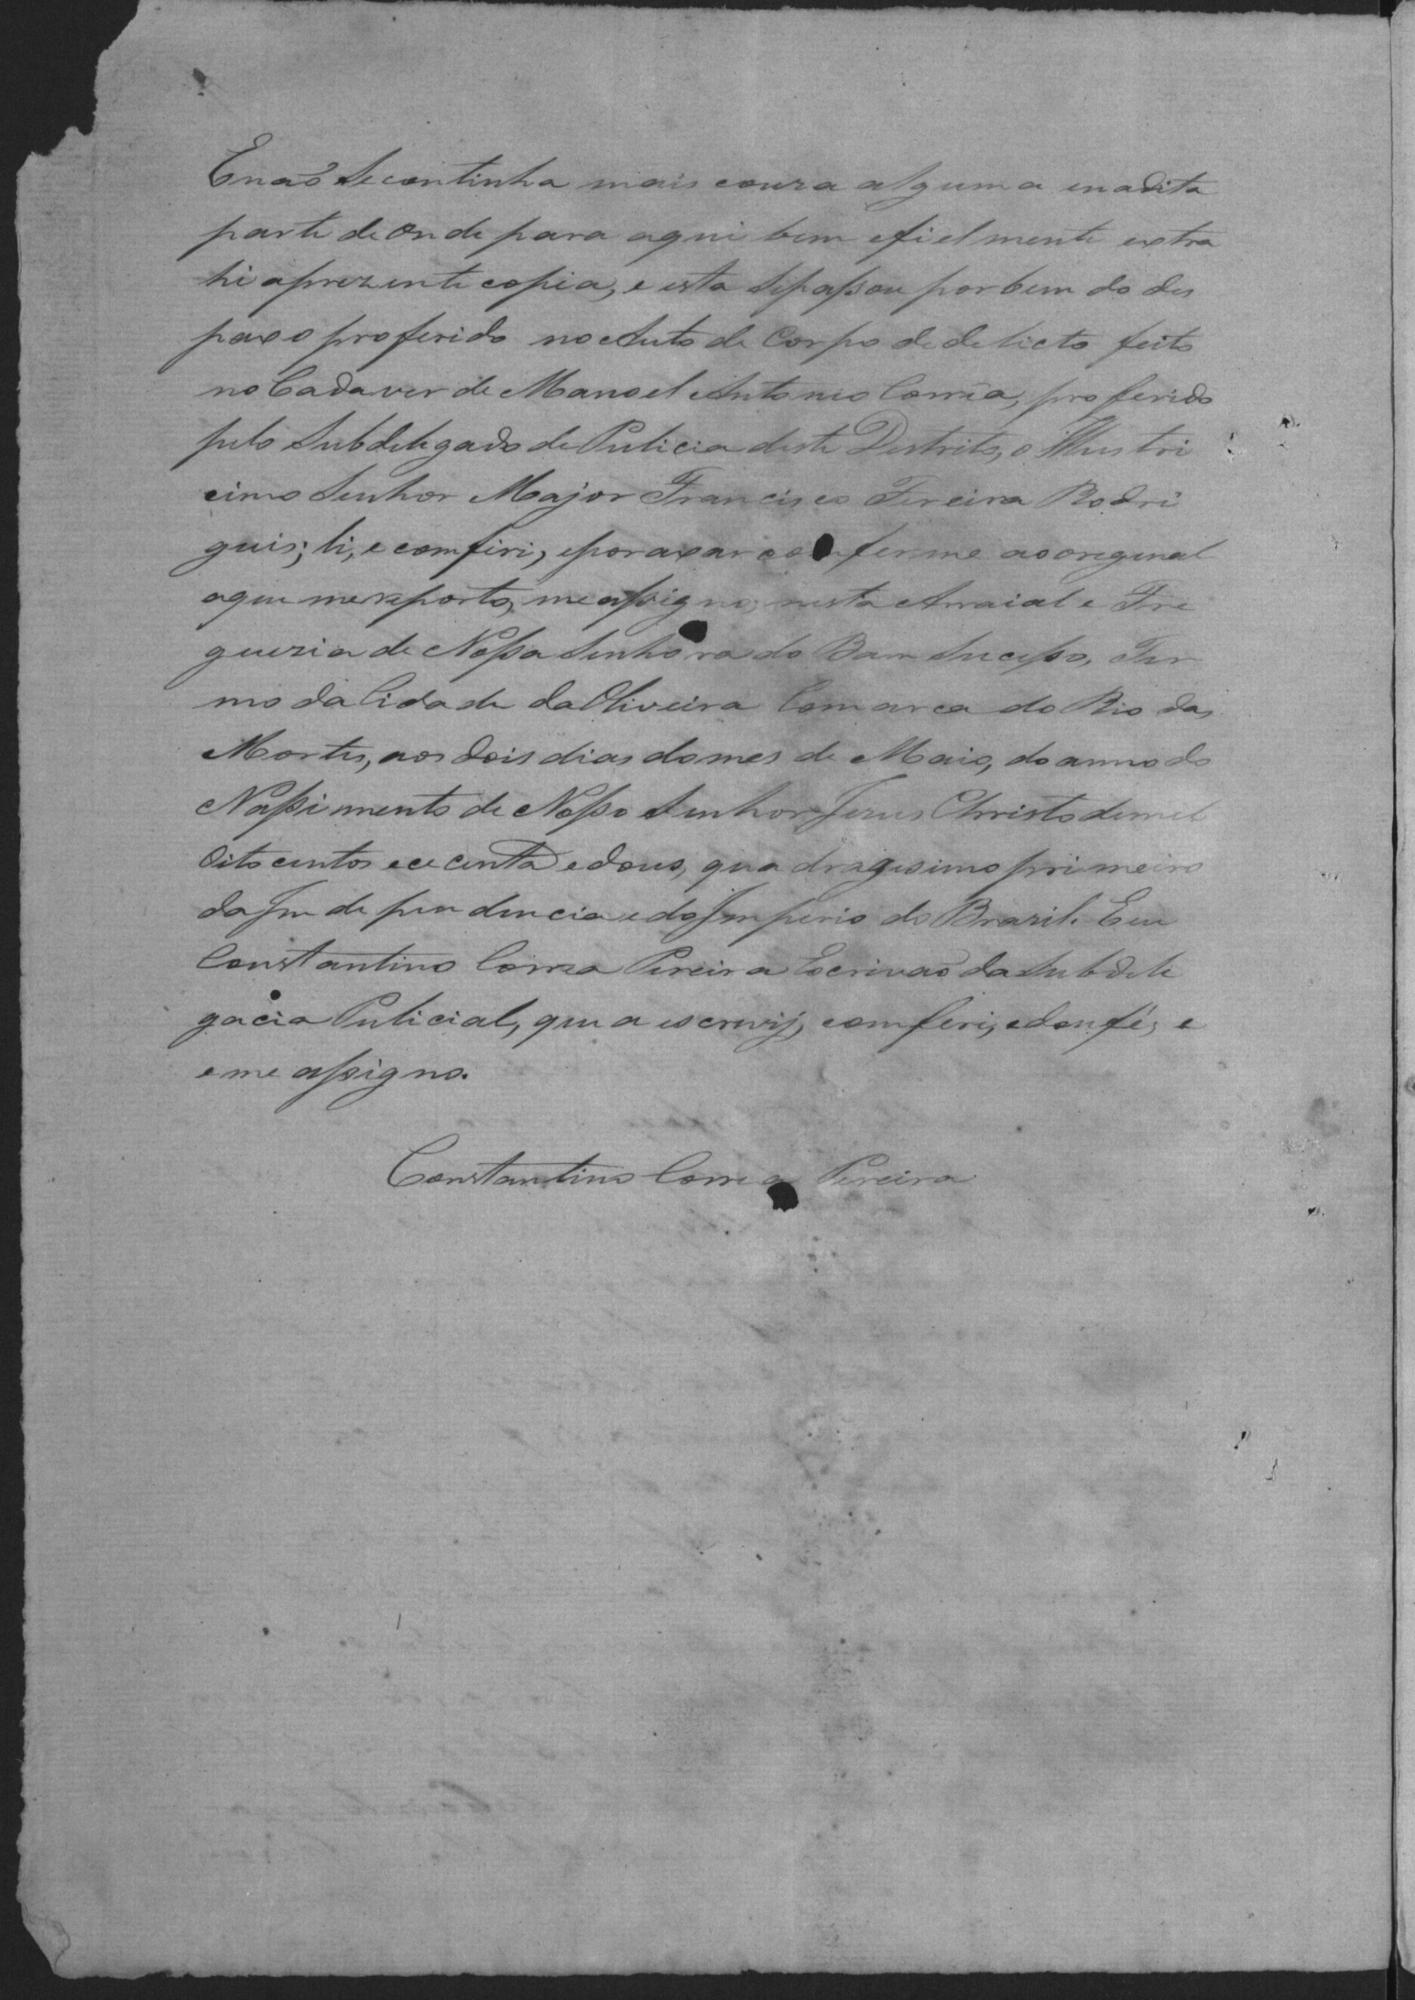 E naõ se continha mais couza alguma em a dita
parte de onde para aqui bem e fielmente extra
hi aprezente copia, e esta sepassou por bem do des
paxo proferido no Auto de Corpo de delicto feito
no Cadaver de Manoel Antonio Corrêa, proferido
pelo Subdelegado de Pulicia deste Destrito, o Illustri
cimo Senhor Major Francisco Fereira Rodri
guis; li, e comfiri, e por axar comferme ao original
a que me reporto, me assigno, nesta Arraial e Fre
guezia de Nossa Senhora do Bom Sucesso, Ter
mo da Cidade da Oliveira Comarca do Rio das
Mortes, aos dois dias do mes de Maio, do anno do
Nassimento de Nosso Senhor Jezus Christo de mil
Oito centos e cecenta e dous, quadragesimo primeiro
da Indepindencia e do Imperio do Brazil. Eeu
Constantino Corrêa Pereira Escrivaõ da Subdele
gacia Pulicial, que a escrivij, comferi, e dou fé, e
e me assigno.
Constantino Correa Pereira